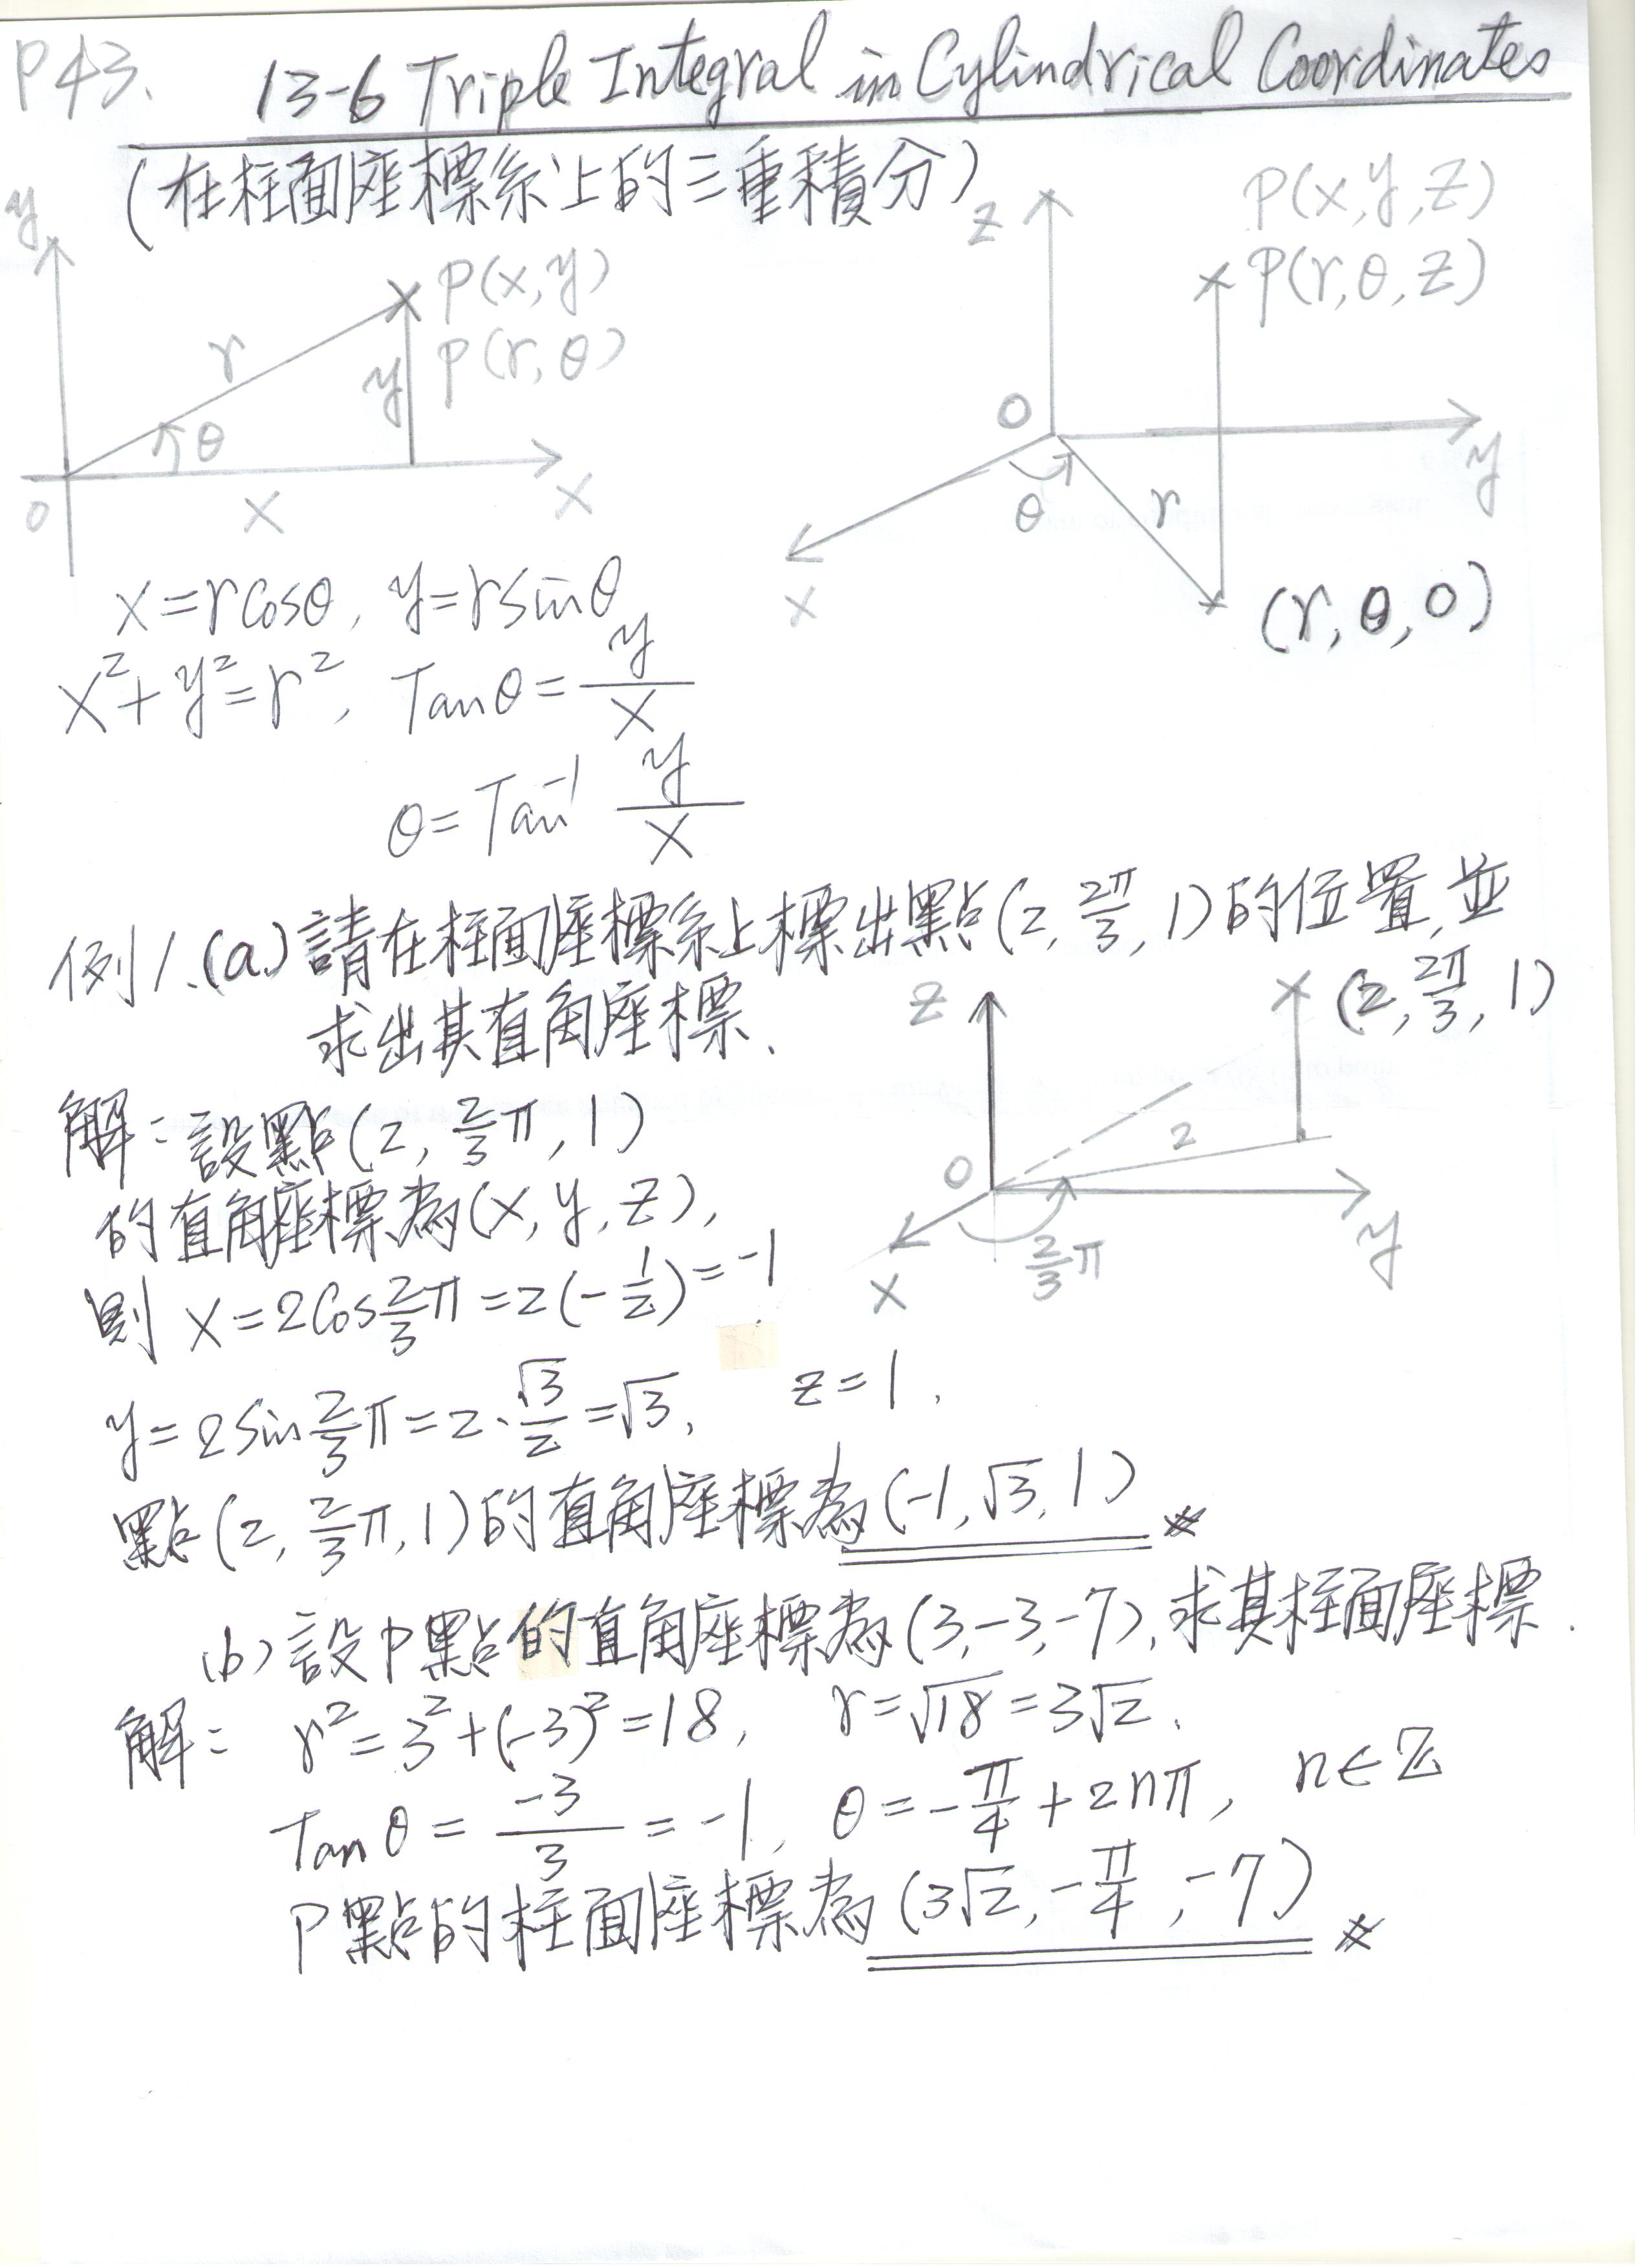 P43. 13-6 Triple Integral in Cylindrical Coordinates
(在柱面座標系上的三重積分)
y
P(x,y)
P(r,θ)
r
y
θ
0
x
x
z
P(x,y,z)
P(r,θ,z)
0
y
θ
r
x
(r,θ,0)
x=rcosθ, y=rsinθ
x²+y²=r², Tanθ=y/x
θ=Tan⁻¹ y/x
例1.(a)請在柱面座標系上標出點(2, 2π/3, 1)的位置,並
求出其直角座標.
z
(2, 2π/3, 1)
2
0
y
2/3π
x
解:設點(2, 2/3π, 1)
的直角座標為(x,y,z),
則 x=2Cos2/3π=2(-1/2)=-1
y=2Sin2/3π=2·√3/2=√3, z=1.
點(2, 2/3π,1)的直角座標為(-1,√3,1)※
(b)設P點的直角座標為(3,-3,-7),求其柱面座標.
解: r²=3²+(-3)²=18, r=√18=3√2.
Tanθ=-3/3=-1, θ=-π/4+2nπ, n∈Z
P點的柱面座標為(3√2,-π/4,-7)※